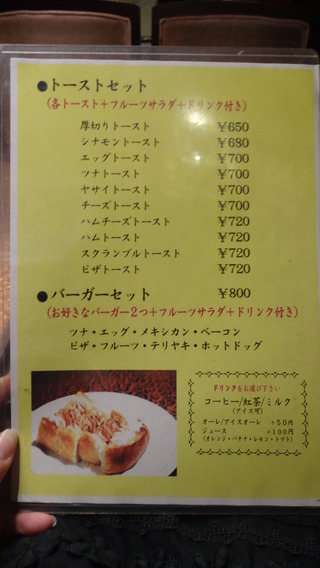 ●トーストセット
(各トースト+フルーツサラダ+ドリンク付き)
厚切りトースト ￥650
シナモントースト ￥680
エッグトースト ￥700
ツナトースト ￥700
ヤサイトースト ￥700
チーズトースト ￥700
ハムチーズトースト ￥720
ハムトースト ￥720
スクランブルトースト ￥720
ピザトースト ￥720
●バーガーセット ￥800
(お好きなバーガー2つ+フルーツサラダ+ドリンク付き)
ツナ・エッグ・メキシカン・ベーコン
ピザ・フルーツ・テリヤキ・ホットドッグ
ドリンクをお選び下さい
コーヒー/紅茶/ミルク
(アイス可)
オーレ/アイスオーレ +50円
ジュース +100円
(オレンジ・バナナ・レモン・トマト)